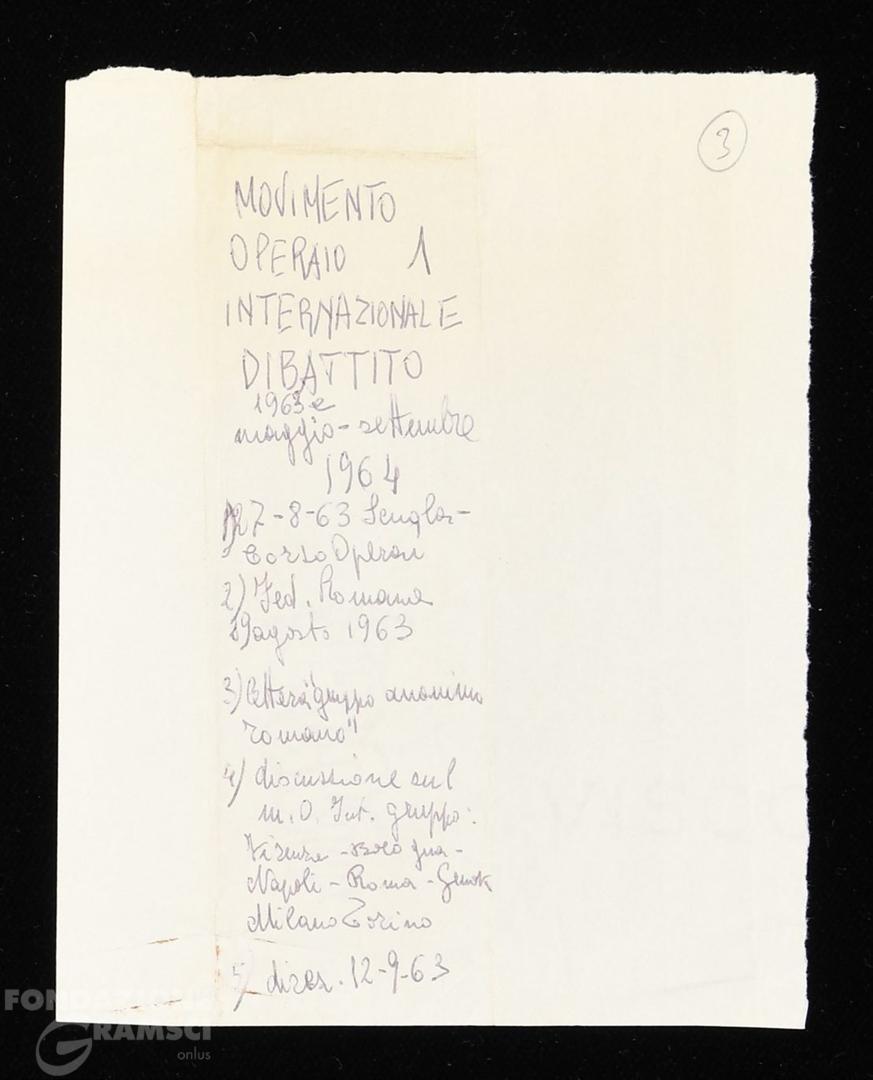 3
MOVIMENTO
OPERAIO 1
INTERNAZIONALE
DIBATTITO
1963 e
maggio-settembre
1964
27-8-63
Corso Operai
2) Fed. Romana
29 agosto 1963
3) lettera "gruppo anonimo
romano"
4) discussione sul
m. O. Int. gruppo:
Firenze - Bologna -
Napoli - Roma - Genova
Milano Torino
5) direz. 12-9-63
FONDAZIONE
GRAMSCI
onlus